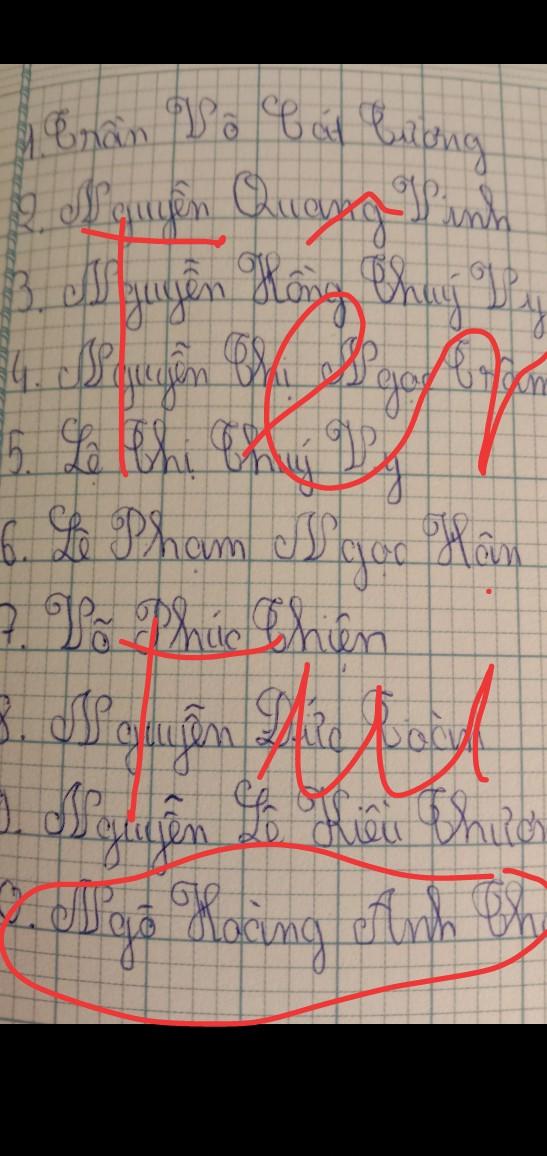 1. Trần Võ Cát Tường
2. Nguyễn Quang Vinh
3. Nguyễn Hồng Thuý Vy
Tên
4. Nguyễn Thị Ngọc Trâm
5. Lê Thị Thuý Vy
6. Lê Phạm Ngọc Hân
7. Võ Phúc Thiện
Tui
8. Nguyễn Đức Toàn
9. Nguyễn Lê Kiều
0. Ngô Hoàng Anh